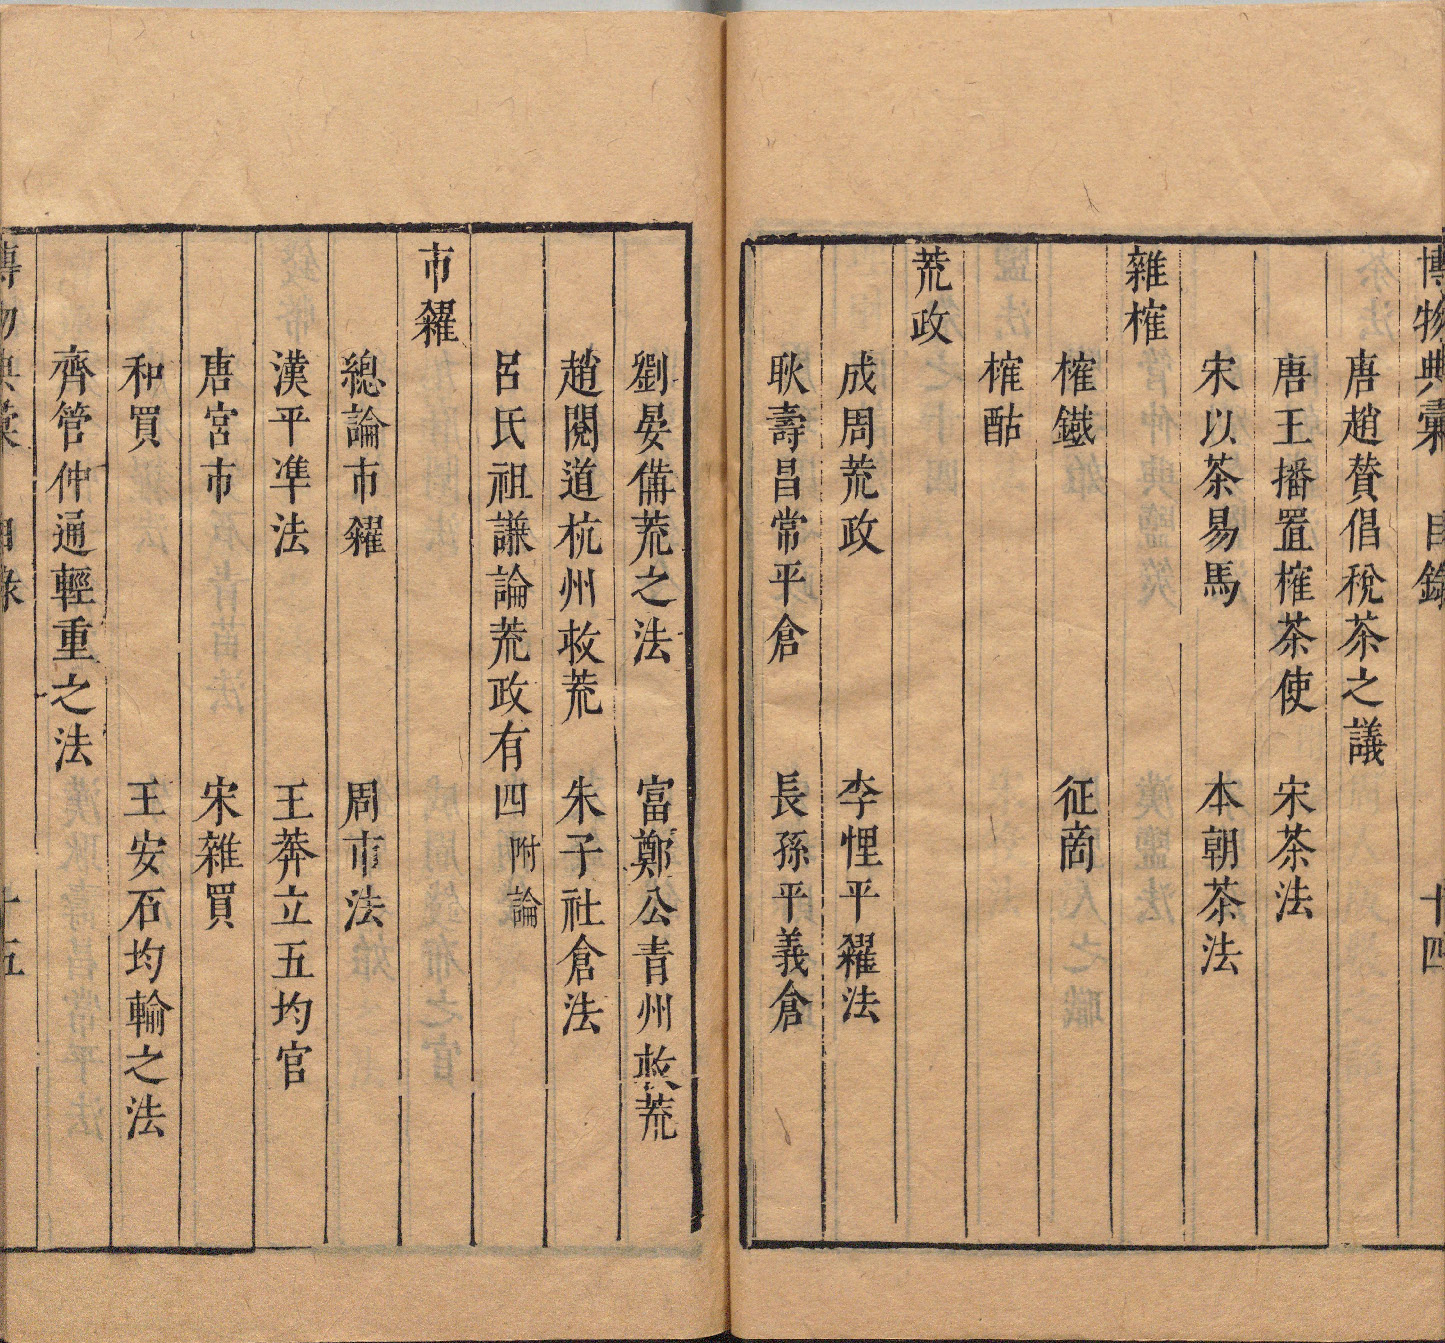 博物典彙 目錄 十四
唐趙贊倡稅茶之議
唐王播置榷茶使 宋茶法
宋以茶易馬 本朝茶法
雜榷
榷鐵 征商
榷酤
荒政
成周荒政 李悝平糴法
耿壽昌常平倉 長孫平義倉
劉晏備荒之法 富鄭公青州救荒
趙閱道杭州救荒 朱子社倉法
呂氏祖謙論荒政有四 附論
市糴
總論市糴 周市法
漢平準法 王莽立五均官
唐宮市 宋雜買
和買 王安石均輸之法
齊管仲通輕重之法
博物典彙 目錄 十五